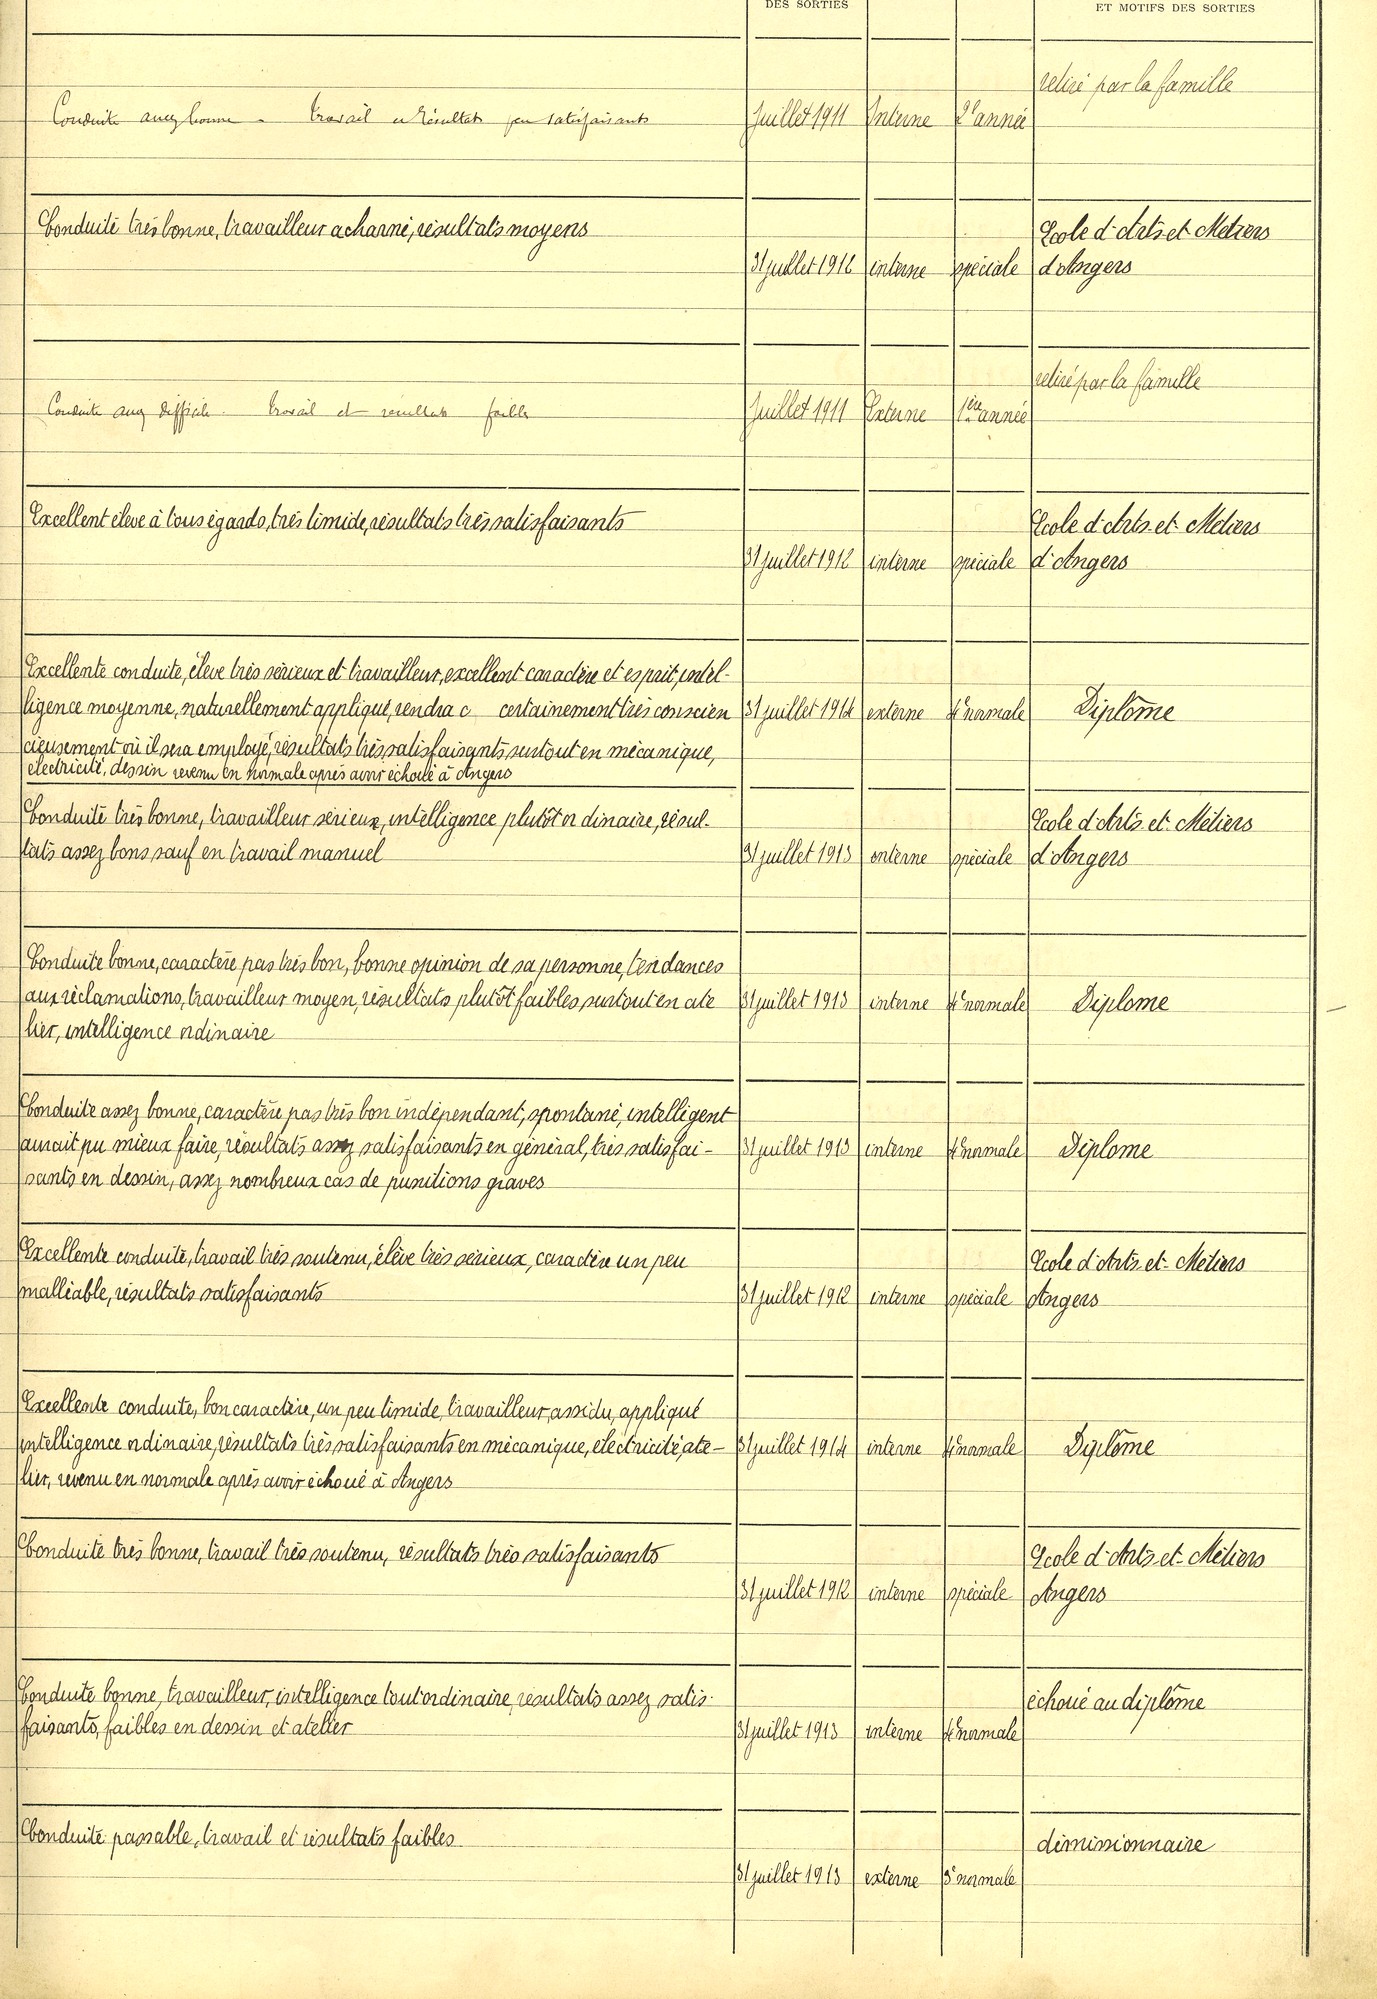 DES SORTIES
ET MOTIFS DES SORTIES
retiré par la famille
Conduite assez bonne - Travail et Résultats peu satisfaisants Juillet 1911 Interne 2e année
Conduite très bonne, travailleur acharné, résultats moyens Ecole d'Arts et Métiers
31 juillet 1912 interne spéciale d'Angers
retiré par la famille
Conduite assez difficile. Travail et résultats faibles Juillet 1911 Externe 1ère année
Excellent élève à tous égards, très timide, résultats très satisfaisants Ecole d'Arts et Métiers
31 juillet 1912 interne spéciale d'Angers
Excellente conduite, élève très sérieux et travailleur, excellent caractère et esprit, intel-
ligence moyenne, naturellement appliqué, rendra c certainement très conscien 31 juillet 1914 externe 4e normale Diplôme
cieusement où il sera employé, résultats très satisfaisants surtout en mécanique,
électricité, dessin revenu en normale après avoir échoué à Angers
Conduite très bonne, travailleur sérieux, intelligence plutôt ordinaire, résul- Ecole d'Arts et Métiers
tats assez bons sauf en travail manuel 31 juillet 1913 interne spéciale d'Angers
Conduite bonne, caractère pas très bon, bonne opinion de sa personne, tendances
aux réclamations, travailleur moyen, résultats plutôt faibles, surtout en ate 31 juillet 1913 interne 4e normale Diplome
lier, intelligence ordinaire
Conduite assez bonne, caractère pas très bon indépendant, spontané, intelligent
aurait pu mieux faire, résultats assez satisfaisants en général, très satisfai- 31 juillet 1913 interne 4e normale Diplome
sants en dessin, assez nombreux cas de punitions graves
Excellente conduite, travail très soutenu, élève très sérieux, caractère un peu Ecole d'Arts et Métiers
malléable, résultats satisfaisants 31 juillet 1912 interne spéciale Angers
Excellente conduite, bon caractère, un peu timide, travailleur, assidu, appliqué
intelligence ordinaire, résultats très satisfaisants en mécanique, électricité, ate- 31 juillet 1914 interne 4e normale Diplôme
lier, revenu en normale après avoir échoué à Angers
Conduite très bonne, travail très soutenu, résultats très satisfaisants Ecole d'Arts et Métiers
31 juillet 1912 interne spéciale Angers
Conduite bonne, travailleur, intelligence tout ordinaire, résultats assez satis- échoué au diplôme
faisants, faibles en dessin et atelier 31 juillet 1913 interne 4e normale
Conduite passable, travail et résultats faibles démissionnaire
31 juillet 1913 externe 3e normale